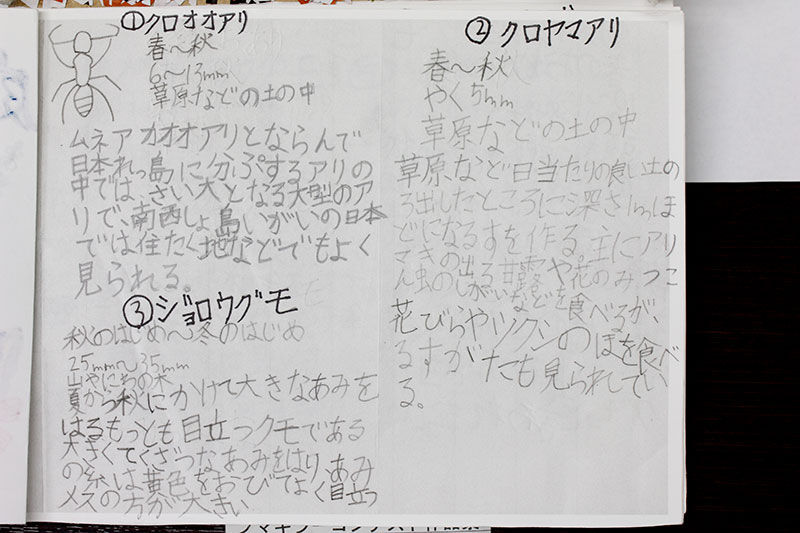 ①クロオオアリ
春〜秋
6〜13mm
草原などの土の中
ムネアカオオアリとならんで
日本れっ島に分ぷするアリの
中では、さい大となる大型のア
リで、南西しょ島いがいの日本
では住たく地などでもよく
見られる。
③ジョロウグモ
秋のはじめ〜冬のはじめ
25mm〜35mm
山やにわの木
夏から秋にかけて大きなあみを
はるもっとも目立つクモである
大きくてくざつなあみをはり、あみ
の糸は黄色をおびてよく目立つ
メスの方が大きい
②クロヤマアリ
春〜秋
やく5mm
草原などの土の中
草原など日当たりの良い土の
ろ出したところに深さ1mほ
どになるすを作る。主にアリ
マキの出す甘露や花のみつ
こん虫のしがいなどを食べるが、
花びらやツクシのほを食べ
るすがたも見られてい
る。